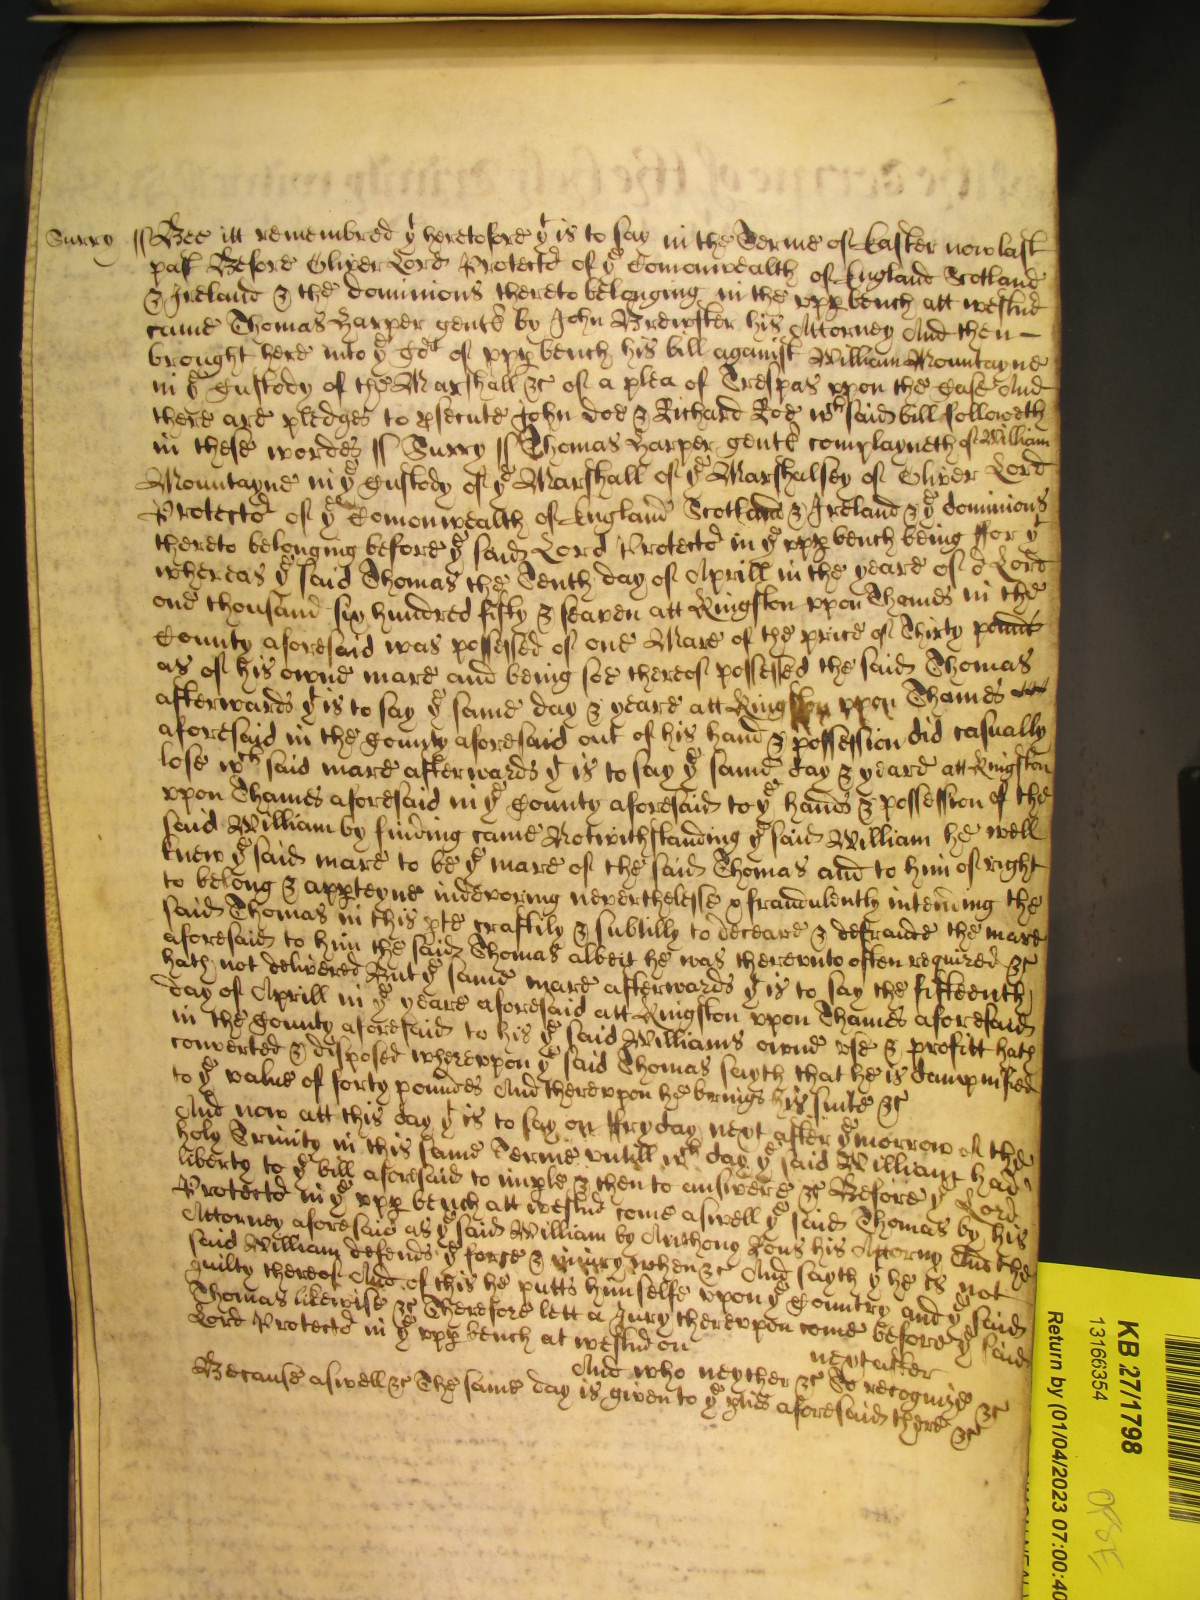 Surry ss Bee itt remembred yt heretofore yt is to say in the Terme of Easter now last
past Before Oliver Lord Protector of ye Comonwealth of England Scotland
& Ireland & the dominions thereto belonging in the upp bench att Westmr
came Thomas Harper gent by John Brewster his Attorney And then
brought here into ye Cort of upp bench his bill against William Mountayne
in ye Custody of the Marshall &c of a plea of Trespas upon the Case And
there are pledges to psecute John Doe & Richard Roe wch said bill followeth
in these wordes ss Surry ss Thomas Harper gent complayneth of William
Mountayne in ye Custody of ye Marshall of ye Marshalsey of Oliver Lord
Protector of ye Comonwealth of England Scotland & Ireland & ye dominions
thereto belonging before ye said Lord Protector in ye upp bench being ffor yt
whereas ye said Thomas the Tenth day of Aprill in the yeare of or Lord
one thousand six hundred fifty & seaven att Kingston upon Thames in the
County aforesaid was possessed of one Mare of the price of Thirty pounds
as of his owne mare and being soe thereof possessed the said Thomas
afterwards yt is to say ye same day & yeare att Kingston upon Thames
aforesaid in the County aforesaid out of his hand & possession did casually
lose wch said mare afterwards yt is to say ye same day & yeare att Kingston
upon Thames aforesaid in ye County aforesaid to ye hands & possession of the
said William by finding came Notwithstanding ye said William he well
knew ye said mare to be ye mare of the said Thomas and to him of right
to belong & apperteyne indevoring neverthelesse & fraudulently intending the
said Thomas in this pte craftily & subtilly to deceave & defraude the mare
aforesaid to him the said Thomas albeit he was thereunto often required &c
hath not delivered But ye same mare afterwards yt is to say the fifteenth
day of Aprill in ye yeare aforesaid att Kingston upon Thames aforesaid
in the County aforesaid to his ye said Williams owne use & profitt hath
converted & disposed whereupon ye said Thomas sayth that he is dampnified
to ye value of forty poundes And thereupon he brings his suite &c
And now att this day yt is to say on ffryday next after ye morrow of the
holy Trinity in this same Terme untill wch day ye said William had
liberty to ye bill aforesaid to imple & then to answere &c Before ye Lord
Protector in ye upp bench att Westmr come aswell ye said Thomas by his
Attorney aforesaid as ye said William by Anthony Rous his Attorny And the
said William defends ye force & injury when &c And sayth yt he is not
guilty thereof And of this he putts himselfe upon ye Country and ye said
Thomas likewise &c Therefore lett a Jury thereupon come before ye said
Lord Protector in ye upp bench at Westmr on
next after
And who neyther &c To recognize &c
Because aswell &c The same day is given to ye pties aforesaid there &c
KB 27/1798
13166354
Return by (01/04/2023 07:00:40